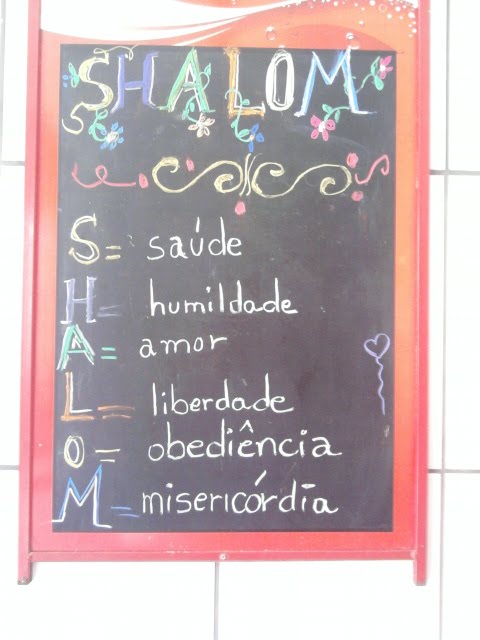 SHALOM
S= saúde
H= humildade
A= amor
L= liberdade
O= obediência
M= misericórdia